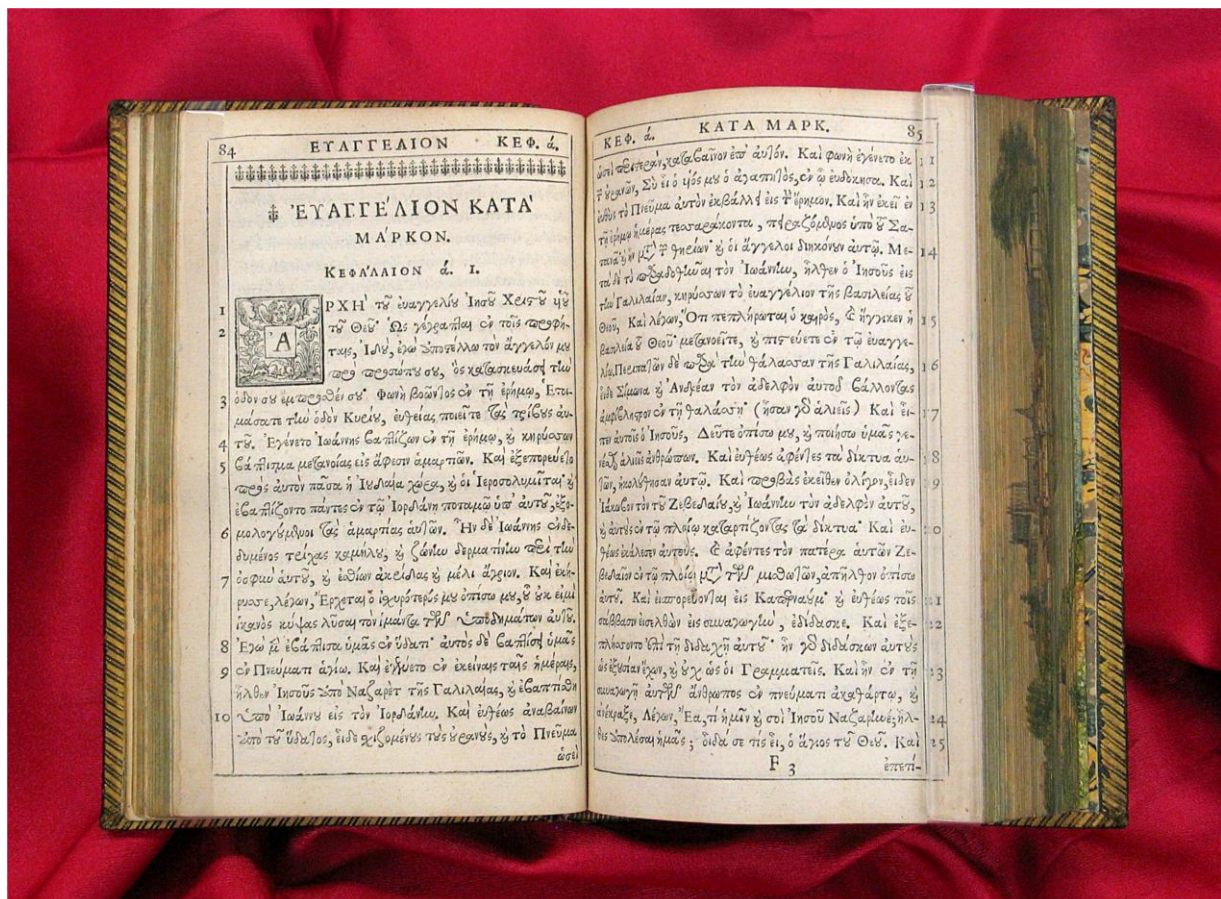 84 ΕΥΑΓΓΕΛΙΟΝ ΚΕΦ. ά.
ἘΥΑΓΓΈΛΙΟΝ ΚΑΤᾺ
ΜΆΡΚΟΝ.
ΚΕΦΆΛΑΙΟΝ ά. 1.
1 ΑΡΧῊ τῦ ἐυαγγελίυ Ἰησῦ Χριςῦ ὑῦ
2 τῦ Θεῦ· Ὡς γέγραπται ἐν τοῖς προφή-
ταις, Ἰδὺ, ἐγὼ ἀποτέλλω τὸν ἄγγελόν μυ
πρὸ προσώπυ συ, ὃς κατασκευάσει τὴν
3 ὁδόν συ ἔμπροσθέν συ· Φωνὴ βοῶντος ἐν τῇ ἐρήμῳ, Ἑτοι-
μάσατε τὴν ὁδὸν Κυρίυ, ἐυθείας ποιεῖτε τὰς τρίβυς ἀυ-
4 τῦ. Ἐγένετο Ἰωάννης βαπτίζων ἐν τῇ ἐρήμῳ, κὶ κηρύσσων
5 βάπτισμα μετανοίας εἰς ἄφεσιν ἁμαρτιῶν. Καὶ ἐξεπορεύετο
πρὸς ἀυτὸν πᾶσα ἡ Ἰυδαία χώρα, κὶ οἱ Ἱεροσολυμῖται· κὶ
ἐβαπτίζοντο πάντες ἐν τῷ Ἰορδάνῃ ποταμῷ ὑπ' ἀυτῦ, ἐξο-
6 μολογύμενοι τὰς ἁμαρτίας ἀυτῶν. Ἦν δὲ Ἰωάννης ἐνδε-
δυμένος τρίχας καμήλυ, κὶ ζώνην δερματίνην περὶ τὴν
7 ὀσφὺν ἀυτῦ, κὶ ἐσθίων ἀκρίδας κὶ μέλι ἄγριον. Καὶ ἐκή-
ρυσσε, λέγων, Ἔρχεται ὁ ἰχυρότερός μυ ὀπίσω μυ, ὗ ὐκ εἰμὶ
ἱκανὸς κύψας λῦσαι τὸν ἱμάντα τῶν ὑποδημάτων ἀυτῦ.
8 Ἐγὼ μὲν ἐβάπτισα ὑμᾶς ἐν ὕδατι· ἀυτὸς δὲ βαπτίσει ὑμᾶς
9 ἐν Πνεύματι ἁγίῳ. Καὶ ἐγένετο ἐν ἐκείναις ταῖς ἡμέραις,
ἦλθεν Ἰησῦς ἀπὸ Ναζαρὲτ τῆς Γαλιλαίας, κὶ ἐβαπτίσθη
10 ὑπὸ Ἰωάννυ εἰς τὸν Ἰορδάνην. Καὶ ἐυθέως ἀναβαίνων
ἀπὸ τῦ ὕδατος, εἶδε σχιζομένυς τὺς ὐρανὺς, κὶ τὸ Πνεῦμα
ὡσεὶ
ΚΕΦ. ά. ΚΑΤΑ ΜΑΡΚ. 85
ὡσεὶ περιστερὰν, καταβαῖνον ἐπ' ἀυτόν. Καὶ φωνὴ ἐγένετο ἐκ 11
τῶν ὐρανῶν, Σὺ εἶ ὁ ὑός μυ ὁ ἀγαπητὸς, ἐν ᾧ ἐυδόκησα. Καὶ 12
ἐυθὺς τὸ Πνεῦμα ἀυτὸν ἐκβάλλει εἰς τὴν ἔρημον. Καὶ ἦν ἐκεῖ ἐν 13
τῇ ἐρήμῳ ἡμέρας τεσσαράκοντα, πειραζόμενος ὑπὸ τῦ Σα-
τανᾶ· κὶ ἦν μετὰ τῶν θηρίων· κὶ οἱ ἄγγελοι διηκόνυν ἀυτῷ. Με- 14
τὰ δὲ τὸ παραδοθῆναι τὸν Ἰωάννην, ἦλθεν ὁ Ἰησῦς εἰς
τὴν Γαλιλαίαν, κηρύσσων τὸ ἐυαγγέλιον τῆς βασιλείας τῦ
Θεῦ, Καὶ λέγων, Ὅτι πεπλήρωται ὁ καιρὸς, κὶ ἤγγικεν ἡ 15
βασιλεία τῦ Θεῦ· μετανοεῖτε, κὶ πιςεύετε ἐν τῷ ἐυαγγε-
λίῳ. Περιπατῶν δὲ παρὰ τὴν θάλασσαν τῆς Γαλιλαίας, 16
εἶδε Σίμωνα κὶ Ἀνδρέαν τὸν ἀδελφὸν ἀυτοῦ βάλλοντας
ἀμφίβληστρον ἐν τῇ θαλάσσῃ· (ἦσαν γὰρ ἁλιεῖς) Καὶ εἶ- 17
πεν ἀυτοῖς ὁ Ἰησῦς, Δεῦτε ὀπίσω μυ, κὶ ποιήσω ὑμᾶς γε-
νέσθαι ἁλιεῖς ἀνθρώπων. Καὶ ἐυθέως ἀφέντες τὰ δίκτυα ἀυ- 18
τῶν, ἠκολύθησαν ἀυτῷ. Καὶ προβὰς ἐκεῖθεν ὀλίγον, εἶδεν 19
Ἰάκωβον τὸν τῦ Ζεβεδαίυ, κὶ Ἰωάννην τὸν ἀδελφὸν ἀυτῦ,
κὶ ἀυτὺς ἐν τῷ πλοίῳ καταρτίζοντας τὰ δίκτυα· Καὶ ἐυ- 20
θέως ἐκάλεσεν ἀυτούς. κὶ ἀφέντες τὸν πατέρα ἀυτῶν Ζε-
βεδαῖον ἐν τῷ πλοίῳ μετὰ τῶν μισθωτῶν, ἀπῆλθον ὀπίσω
ἀυτῦ. Καὶ εἰσπορεύονται εἰς Καπερναύμ· κὶ ἐυθέως τοῖς 21
σάββασιν εἰσελθὼν εἰς συναγωγὴν, ἐδίδασκε. Καὶ ἐξε- 22
πλήσσοντο ἐπὶ τῇ διδαχῇ ἀυτῦ· ἦν γὰρ διδάσκων ἀυτὺς
ὡς ἐξυσίαν ἔχων, κὶ ὐχ ὡς οἱ Γραμματεῖς. Καὶ ἦν ἐν τῇ 23
συναγωγῇ ἀυτῶν ἄνθρωπος ἐν πνεύματι ἀκαθάρτῳ, κὶ
ἀνέκραξε, Λέγων, Ἔα, τί ἡμῖν κὶ σοὶ Ἰησοῦ Ναζαρηνέ; ἦλ- 24
θες ἀπολέσαι ἡμᾶς; οἶδά σε τίς εἶ, ὁ ἅγιος τῦ Θεῦ. Καὶ 25
F 3 ἐπετί-